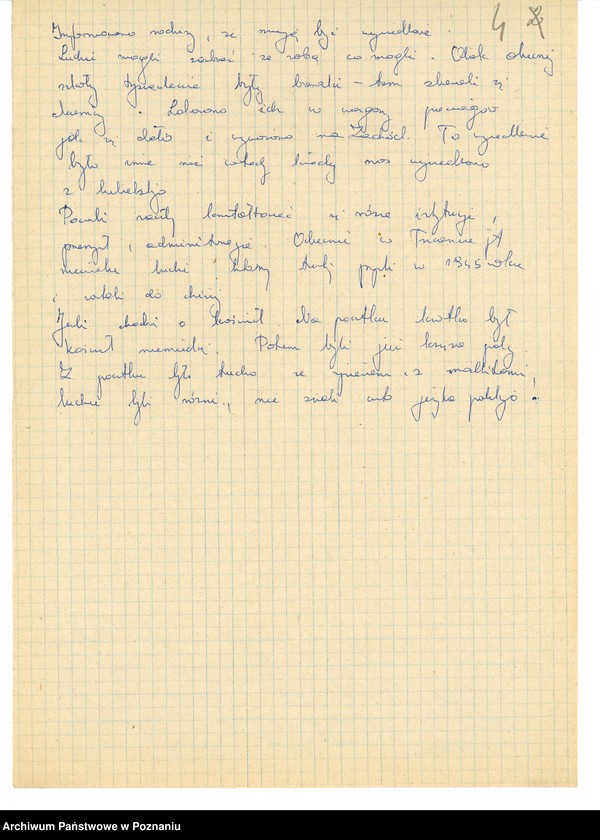 4
Informowano rodziny, że mają być wysiedlone.
Ludzie mogli zabrać ze sobą co mogli. Obok obecnej
szkoły tysiąclecia były baraki – tam zbierali się
Niemcy. Ładowano ich w wagony pociągów
jak się dało i wywożono na Zachód. To wysiedlenie
było inne niż wtedy kiedy nas wysiedlono
z lubelskiego
Powoli zaczęły kształtować się różne instytucje,
przemysł, administracja. Obecnie w Trzciance jest
niewielu ludzi, którzy tutaj przybyli w 1945 roku
i zostali do dzisiaj
Jeśli chodzi o kościół Na początku krótko był
kościół niemiecki. Potem byli już księża polscy.
Z początku było trudno ze i z modlitwami,
ludzie byli różni, nie znali języka polskiego.
Archiwum Państwowe w Poznaniu